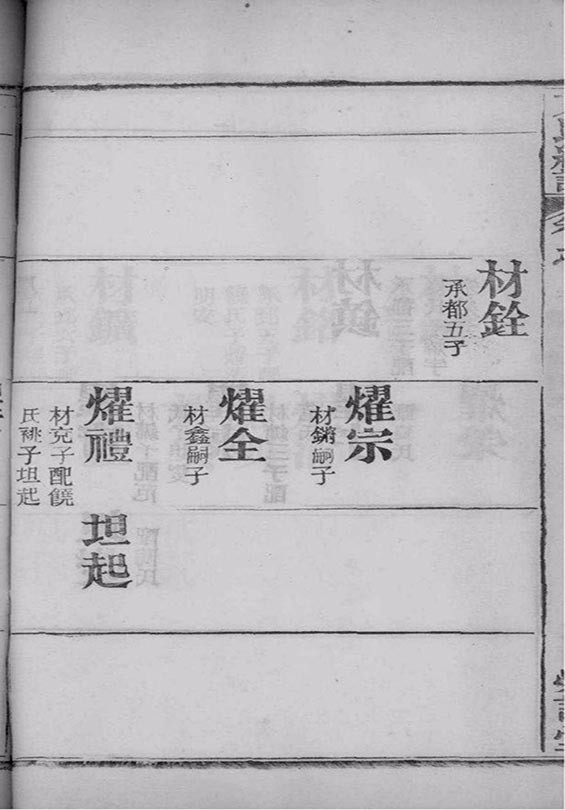 材銓
承都五子
燿宗
材鏘嗣子
燿全
材鑫嗣子
燿禮
材兗子配饒
氏祧子坦起
坦起